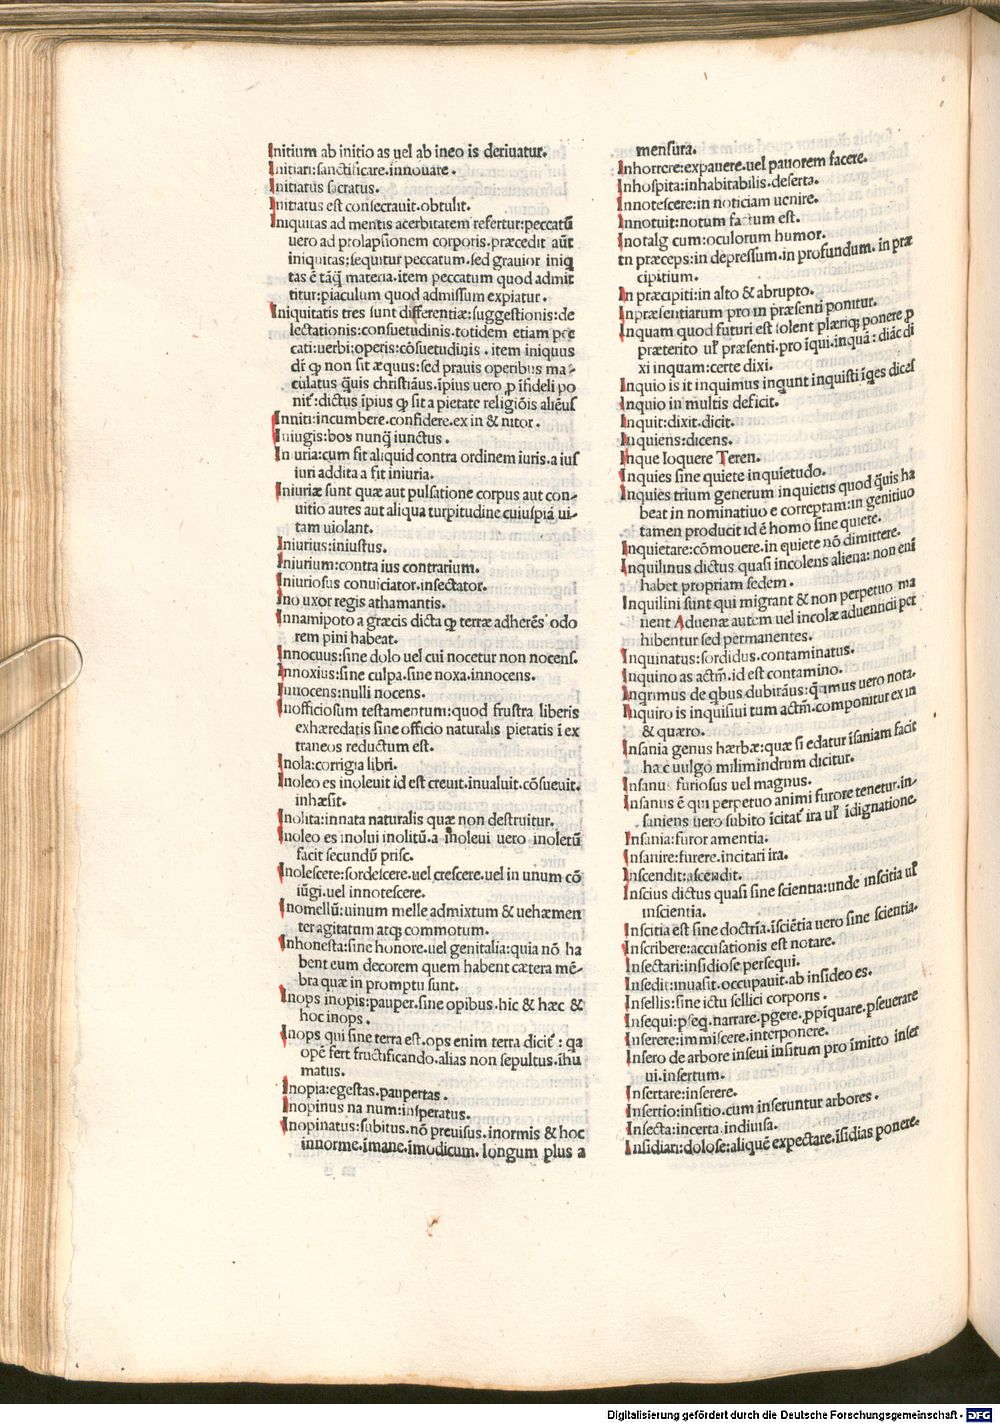 Initium ab initio as uel ab ineo is deriuatur.
Initiari:sanctificare.innouare.
Initiatus sacratus.
Initiatus est consecrauit.obtulit.
Iniquitas ad mentis acerbitatem refertur:peccatū
uero ad prolapsionem corporis.præcedit aūt
iniquitas:sequitur peccatum.sed grauior iniq
tas ē tāq̄ materia.item peccatum quod admit
titur:piaculum quod admissum expiatur.
Iniquitatis tres sunt differentiæ:suggestionis:de
lectationis:consuetudinis.totidem etiam pec
cati:uerbi:operis:cōsuetudinis.item iniquus
dr̄ ꝙ non sit æquus:sed prauis operibus ma-
culatus q̄uis christiāus.ipius uero ꝓ īfideli po
nit᷑:dictus ipius ꝙ sit a pietate religiōis aliēus
Inniti:incumbere.confidere.ex in & nitor.
Iniugis:bos nunq̄ iunctus.
In uria:cum fit aliquid contra ordinem iuris.a ius
iuri addita a fit iniuria.
Iniuriæ sunt quæ aut pulsatione corpus aut con-
uitio aures aut aliqua turpitudine cuiuspiā ui-
tam uiolant.
Iniurius:iniustus.
Iniurium:contra ius contrarium.
Iniuriosus conuiciator.insectator.
Ino uxor regis athamantis.
Innamipoto a græcis dicta ꝙ terræ adherēs odo
rem pini habeat.
Innocuus:sine dolo uel cui nocetur non nocens.
Innoxius:sine culpa.sine noxa.innocens.
Innocens:nulli nocens.
Inofficiosum testamentum:quod frustra liberis
exhæredatis sine officio naturalis pietatis i ex
traneos reductum est.
Inola:corrigia libri.
Inoleo es inoleuit id est creuit.inualuit.cōsueuit.
inhæsit.
Inolita:innata naturalis quæ non destruitur.
Inoleo es inolui inolitū.a inoleui uero inoletū
facit secundū prisc.
Inolescere:sordescere.uel crescere.uel in unum cō
iūgi.uel innotescere.
Inomellū:uinum melle admixtum & uehæmen
ter agitatum atq; commotum.
Inhonesta:sine honore.uel genitalia:quia nō ha
bent eum decorem quem habent cætera mē-
bra quæ in promptu sunt.
Inops inopis:pauper.sine opibus.hic & hæc &
hoc inops.
Inops qui sine terra est.ops enim terra dicit᷑:qa
opē fert fructificando.alias non sepultus.ihu
matus.
Inopia:egestas.paupertas.
Inopinus na num:insperatus.
Inopinatus:subitus.nō preuisus.inormis & hoc
innorme.imane.īmodicum.longum plus a
mensura.
Inhorrere:expauere.uel pauorem facere.
Inhospita:inhabitabilis.deserta.
Innotescere:in noticiam uenire.
Innotuit:notum factum est.
Inotalg cum:oculorum humor.
In præceps:in depressum.in profundum.in præ
cipitium.
In præcipiti:in alto & abrupto.
Inpræsentiarum pro in præsenti ponitur.
Inquam quod futuri est solent plæriq; ponere ꝓ
præterito ul᷑ præsenti.pro īqui.inquā:diāc di
xi inquam:certe dixi.
Inquio is it inquimus inqunt inquisti īqes dices
Inquio in multis deficit.
Inquit:dixit.dicit.
Inquiens:dicens.
Inque loquere Teren.
Inquies sine quiete inquietudo.
Inquies trium generum inquietis quod q̄uis ha
beat in nominatiuo e correptam:in genitiuo
tamen producit id ē homo sine quiete.
Inquietare:cōmouere.in quiete nō dimittere.
Inquilinus dictus quasi incolens aliena:non enī
habet propriam sedem.
Inquilini sunt qui migrant & non perpetuo ma
nent Aduenæ autem uel incolæ aduenticii per
hibentur sed permanentes.
Inquinatus:sordidus.contaminatus.
Inquino as actm̄.id est contamino.
Inqrimus de qbus dubitāus:q̄rimus uero nota.
Inquiro is inquisiui tum actm̄.componitur ex in
& quæro.
Insania genus hærbæ:quæ si edatur īsaniam facit
hæc uulgo milimindrum dicitur.
Insanus furiosus uel magnus.
Insanus ē qui perpetuo animi furore tenetur.in-
saniens uero subito īcitat᷑ ira ul᷑ īdignatione.
Insania:furor amentia.
Insanire:furere.incitari ira.
Inscendit:ascendit.
Inscius dictus quasi sine scientia:unde inscitia ul᷑
inscientia.
Inscitia est sine doctrīa.īsciētia uero sine scientia.
Inscribere:accusationis est notare.
Insectari:insidiose persequi.
Insedit:inuasit.occupauit.ab insideo es.
Insellis:sine ictu sellici corporis.
Insequi:ꝑseq.narrare.ꝑgere.ꝓpīquare.ꝑseuerare
Inserere:immiscere.interponere.
Insero de arbore inseui insitum pro īmitto inser
ui.insertum.
Insertare:inserere.
Insertio:insitio.cum inseruntur arbores.
Insecta:incerta.indiuisa.
Insidiari:dolose:aliquē expectare.īsidias ponere.
Digitalisierung gefördert durch die Deutsche Forschungsgemeinschaft - DFG